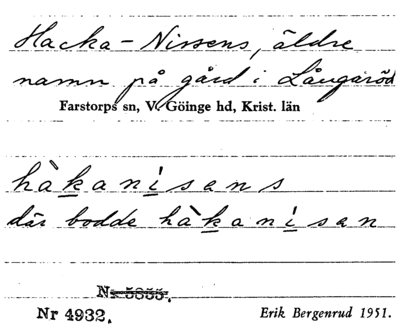 Hacka-Nissens, äldre
namn på gård i Långaröd
Farstorps sn, V. Göinge hd, Krist. län
hàkanisans
där bodde hàkanisan
Nr 5855.
Nr 4932.
Erik Bergenrud 1951.